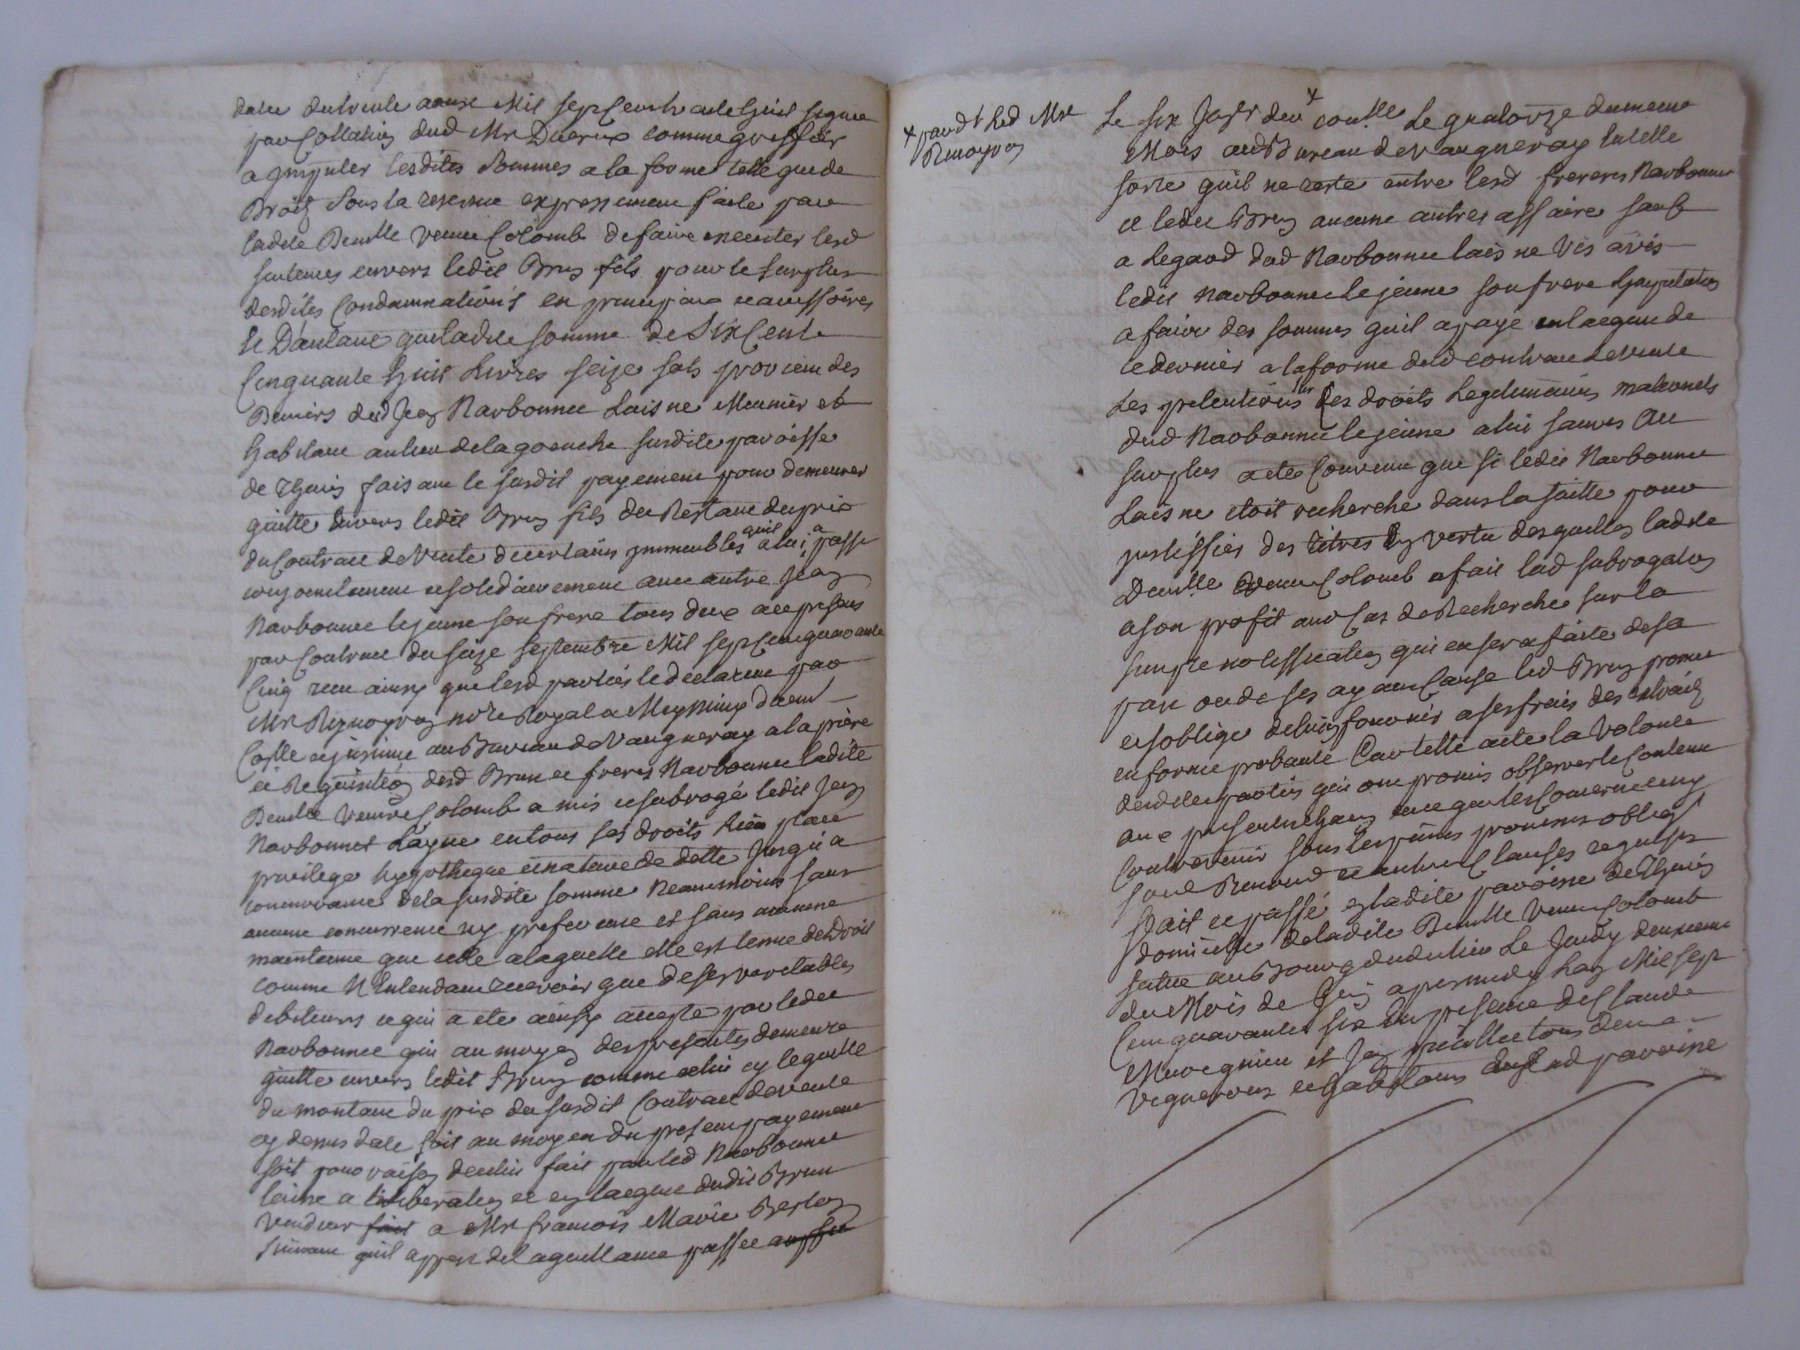 datée du trente aoust Mil sept cent trante huit signée
par Collation dud Mr Ducreux comme greffier
a jmputer lesdites Sommes a la forme telle que de
Droit Sous la reserve expressement faite par
ladite Demlle veuve Colomb de faire executer lesd
sentences envers ledit Brun fils pour le surplus
desdites Condamnations en principaux et accessoires
Et Dautant que ladite somme de Six Cent
Cinquante huit Livres seize sols provient des
Deniers dud Jean Narbonnet Laisne Meunier et
habitant au lieu de la gouuche susdite paroisse
de Thurin faisant le susdit payement pour demeurer
quitte Envers ledit Brun fils du Restant du prix
du Contract de Vente de certains jmmeubles quil a a lui passé
conjointement et solidairement avec autre Jean
Narbonnet le jeune son frere tous deux acceptans
par Contract du seize septembre Mil sept Cent quarante
Cinq receu ainsy que lesd parties le declarent par
Mr Reynoyron nore Royal a Messimy duem
Collé et jnsinué au Bureau de Vaugneray a la priere
et Requisition desd Brun et freres Narbonnet ladite
Demlle Veuve Colomb a mis et subrogé ledit Jean
Narbonnet Layne en tous ses droits lieu place
privilege hypotheque et nature de dette Jusqu'a
concurrance de la susdite somme Neanmoins sans
aucune concurrence ny preference et sans aucune
maintenue que celle a laquelle elle est tenue de Droit
comme N'entendant recevoir que de ses veritables
debiteurs ce qui a eté ainsy accepté par ledit
Narbonnet qui au moyen des presentes demeure
quitte envers ledit Brun comme celui cy le quitte
du montant du prix du susdit Contract de vente
cy dessus daté soit au moyen du present payement
soit pour raison de celui fait par led Narbonnet
laine a liberation et en lacquit dudit Brun
Vendeur fait a Mr francois Marie Berton
suivant quil appert de la quittance passée aussy
x pardt Led Mre
Renoyron
Le six Jasr der x conlle Le quatorze du meme
Mois aud Bureau de Vaugneray Entelle
sorte quil ne reste entre lesd freres Narbonnet
et ledit Brun aucune autres affaire sauf
a Legard dud Narbonnet laisne Vis avis
ledit Narbonnet Le jeune son frere Limputation
a faire des sommes quil a payé en lacquit de
ce dernier a la forme dud contract de vente
Les pretentions sur les droits Legitimaires maternels
dud Narbonnet le jeune a lui sauves Au
surplus a eté Convenu que si ledit Narbonnet
Laisne etoit recherché dans la suitte pour
justiffier des titres En vertu desquelles ladite
Demlle Veuve Colomb a fait lad subrogation
a son profit aud Cas de Recherche sur la
simple notiffication qui en sera faite de sa
part ou de ses ayant Cause led Brun promet
et soblige de luy fournir a ses frais des extraits
en forme probante Car telle acte la volonté
desdites parties qui ont promis observer le Contenu
aux presentes chacun en ce qui les Concerne et ny
Contrevenir sous les peines promises obligé
soud Renoncé et autres Clauses requises
fait et passé en ladite paroisse de Thurin
domicille de ladite Demlle Veuve Colomb
sittué au Bourg dudit lieu Le Jeudy deuxieme
du Mois de Juin apres midy Lan Mil sept
Cent quarante six En presence de Claude
Murigneu et Jean pucollet tous deux
Vignerons et habitans dudit lad paroisse